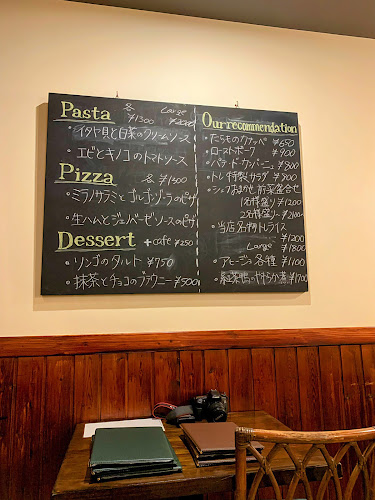 Pasta 各 ¥1300 Large ¥2000
・イタヤ貝と白菜のクリームソース
・エビとキノコのトマトソース
Pizza 各 ¥1300
・ミラノサラミとゴルゴンゾーラのピザ
・生ハムとジェノベーゼソースのピザ
Dessert +cafe ¥250
・リンゴのタルト ¥750
・抹茶とチョコのブラウニー ¥500
Our recommendation
・たらものカナッペ ¥650
・ローストポーク ¥900
・パテ・ド・カンパーニュ ¥800
・トレ特製サラダ ¥800
・シェフおまかせ前菜盛合せ
1名様盛り ¥1200
2名様盛り ¥2100~
・当店名物トルコライス
¥1200
Large ¥1800
・アヒージョ各種 ¥1100
・やわらか煮 ¥1700